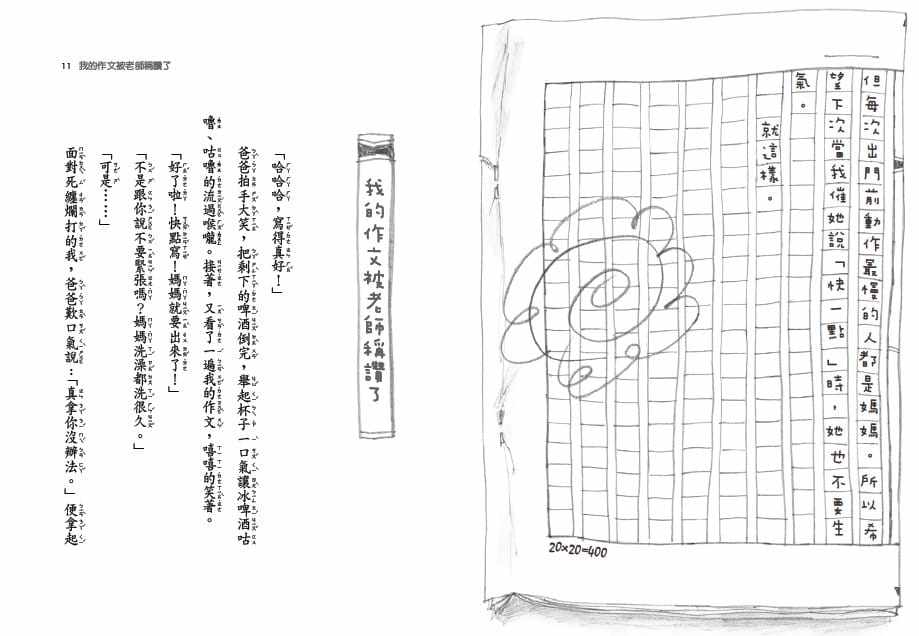 但每次出門前動作最慢的人都是媽媽。所以希
望下次當我催她說「快一點」時，她也不要生
氣。
就這樣。
20×20=400
我的作文被老師稱讚了
「哈哈哈，寫得真好！」
爸爸拍手大笑，把剩下的啤酒倒完，舉起杯子一口氣讓冰啤酒咕
嚕、咕嚕的流過喉嚨。接著，又看了一遍我的作文，嘻嘻的笑著。
「好了啦！快點寫！媽媽就要出來了！」
「不是跟你說不要緊張嗎？媽媽洗澡都洗很久。」
「可是……」
面對死纏爛打的我，爸爸歎口氣說：「真拿你沒辦法。」便拿起
11 我的作文被老師稱讚了